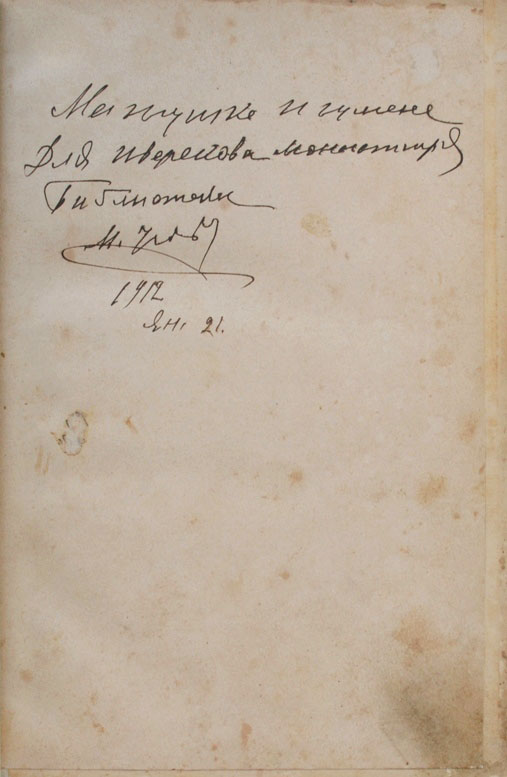 Матушке игумене
Для иверскова монастиря
Библиотеки
1912
Ян. 21.